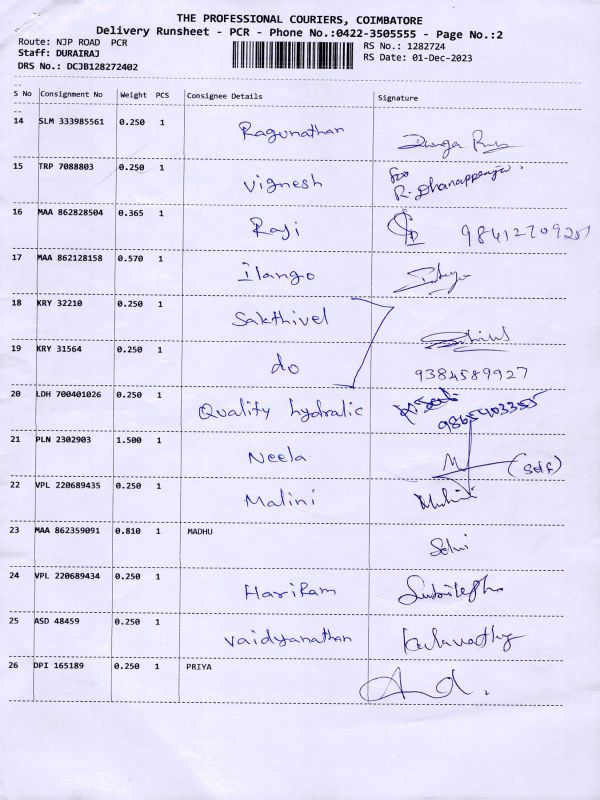 THE PROFESSIONAL COURIERS, COIMBATORE
Delivery Runsheet - PCR - Phone No.:0422-3505555 - Page No.:2
Route: NJP ROAD PCR
RS No.: 1282724
Staff: DURAIRAJ
RS Date: 01-Dec-2023
DRS No.: DCJB128272402
S No Consignment No Weight PCS Consignee Details Signature
14 SLM 333985561 0.250 1 Ragunathan
15 TRP 7088803 0.250 1 Vignesh R. Dhanappenja
16 MAA 862828504 0.365 1 Raji
17 MAA 862128158 0.570 1 Ilango
18 KRY 32210 0.250 1 Sakthivel
19 KRY 31564 0.250 1 do 9384589927
20 LDH 700401026 0.250 1 Quality hydralic 9865403355
21 PLN 2302903 1.500 1 Neela (self)
22 VPL 220689435 0.250 1 Malini
23 MAA 862359091 0.810 1 MADHU Selvi
24 VPL 220689434 0.250 1 HariRam
25 ASD 48459 0.250 1 Vaidyanathan
26 DPI 165189 0.250 1 PRIYA